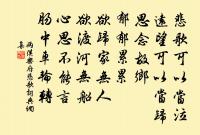 悲歌可以當泣
遠望可以當歸
思念故鄉
郁郁累累
欲歸家無人
欲渡河無船
心思不能言
腸中車輪轉
兩漢樂府悲歌詞典網
集